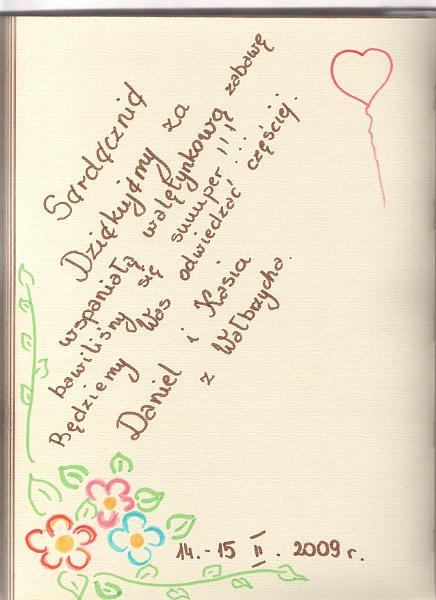 Serdecznie
Dziękujemy za
wspaniałą walentynkową zabawę
bawiliśmy się suuuper !!!
Będziemy Was odwiedzać częściej.
Daniel i Kasia
z Wałbrzycha.
14.-15 II. 2009 r.